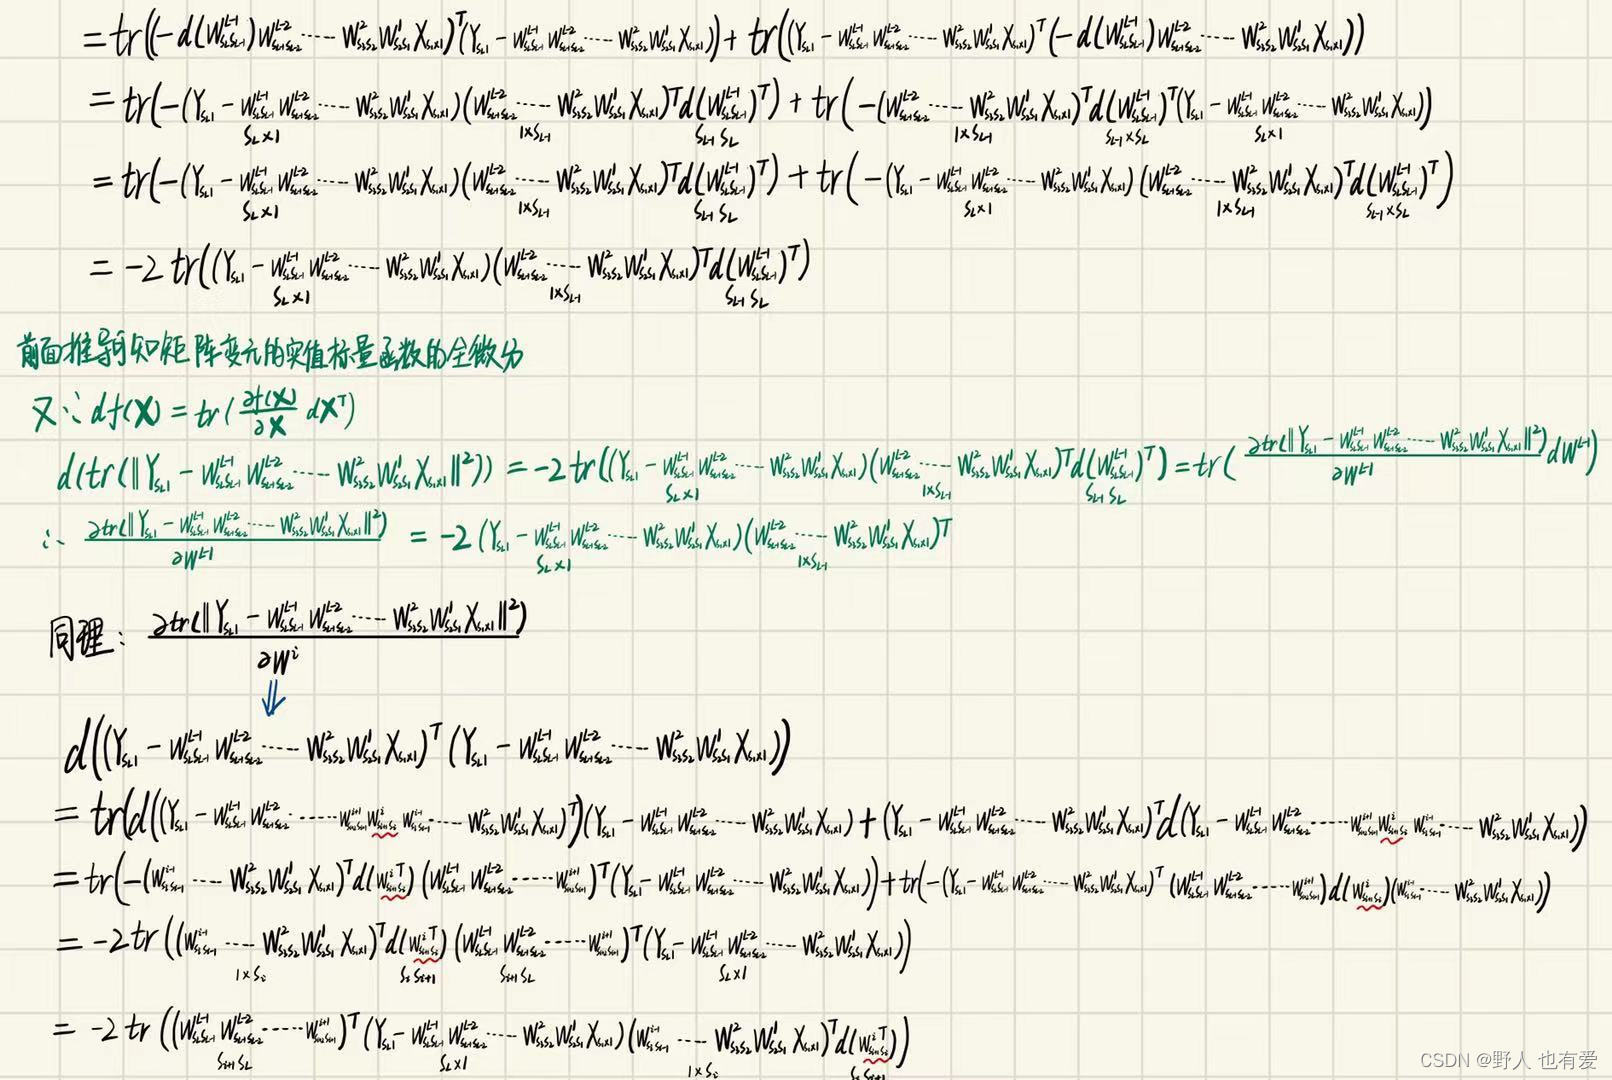 = tr((-d(W^{L-1}_{S_LS_{L-1}})W^{L-2}_{S_{L-1}S_{L-2}}……W^2_{S_3S_2}W^1_{S_2S_1}X_{S_1×1})^T(Y_{S_L1} - W^{L-1}_{S_LS_{L-1}}W^{L-2}_{S_{L-1}S_{L-2}}……W^2_{S_3S_2}W^1_{S_2S_1}X_{S_1×1})) + tr((Y_{S_L1} - W^{L-1}_{S_LS_{L-1}}W^{L-2}_{S_{L-1}S_{L-2}}……W^2_{S_3S_2}W^1_{S_2S_1}X_{S_1×1})^T(-d(W^{L-1}_{S_LS_{L-1}})W^{L-2}_{S_{L-1}S_{L-2}}……W^2_{S_3S_2}W^1_{S_2S_1}X_{S_1×1}))
= tr(-(Y_{S_L1} - W^{L-1}_{S_LS_{L-1}}W^{L-2}_{S_{L-1}S_{L-2}}……W^2_{S_3S_2}W^1_{S_2S_1}X_{S_1×1})(W^{L-2}_{S_{L-1}S_{L-2}}……W^2_{S_3S_2}W^1_{S_2S_1}X_{S_1×1})^Td(W^{L-1}_{S_LS_{L-1}})^T) + tr(-(W^{L-2}_{S_{L-1}S_{L-2}}……W^2_{S_3S_2}W^1_{S_2S_1}X_{S_1×1})^Td(W^{L-1}_{S_LS_{L-1}})^T(Y_{S_L1} - W^{L-1}_{S_LS_{L-1}}W^{L-2}_{S_{L-1}S_{L-2}}……W^2_{S_3S_2}W^1_{S_2S_1}X_{S_1×1}))
S_L×1 1×S_{L-1} S_{L-1} S_L 1×S_{L-1} S_{L-1}×S_L S_L×1
= tr(-(Y_{S_L1} - W^{L-1}_{S_LS_{L-1}}W^{L-2}_{S_{L-1}S_{L-2}}……W^2_{S_3S_2}W^1_{S_2S_1}X_{S_1×1})(W^{L-2}_{S_{L-1}S_{L-2}}……W^2_{S_3S_2}W^1_{S_2S_1}X_{S_1×1})^Td(W^{L-1}_{S_LS_{L-1}})^T) + tr(-(Y_{S_L1} - W^{L-1}_{S_LS_{L-1}}W^{L-2}_{S_{L-1}S_{L-2}}……W^2_{S_3S_2}W^1_{S_2S_1}X_{S_1×1})(W^{L-2}_{S_{L-1}S_{L-2}}……W^2_{S_3S_2}W^1_{S_2S_1}X_{S_1×1})^Td(W^{L-1}_{S_LS_{L-1}})^T)
S_L×1 1×S_{L-1} S_{L-1} S_L S_L×1 1×S_{L-1} S_{L-1}×S_L
= -2 tr((Y_{S_L1} - W^{L-1}_{S_LS_{L-1}}W^{L-2}_{S_{L-1}S_{L-2}}……W^2_{S_3S_2}W^1_{S_2S_1}X_{S_1×1})(W^{L-2}_{S_{L-1}S_{L-2}}……W^2_{S_3S_2}W^1_{S_2S_1}X_{S_1×1})^Td(W^{L-1}_{S_LS_{L-1}})^T)
S_L×1 1×S_{L-1} S_{L-1} S_L
前面推导可知矩阵变元的实值标量函数的全微分
又∵ df(X) = tr(∂f(X)/∂X dX^T)
d(tr(‖Y_{S_L1} - W^{L-1}_{S_LS_{L-1}}W^{L-2}_{S_{L-1}S_{L-2}}……W^2_{S_3S_2}W^1_{S_2S_1}X_{S_1×1}‖^2)) = -2 tr((Y_{S_L1} - W^{L-1}_{S_LS_{L-1}}W^{L-2}_{S_{L-1}S_{L-2}}……W^2_{S_3S_2}W^1_{S_2S_1}X_{S_1×1})(W^{L-2}_{S_{L-1}S_{L-2}}……W^2_{S_3S_2}W^1_{S_2S_1}X_{S_1×1})^Td(W^{L-1}_{S_LS_{L-1}})^T) = tr(∂tr(‖Y_{S_L1} - W^{L-1}_{S_LS_{L-1}}W^{L-2}_{S_{L-1}S_{L-2}}……W^2_{S_3S_2}W^1_{S_2S_1}X_{S_1×1}‖^2)/∂W^{L-1} dW^{L-1})
S_L×1 1×S_{L-1} S_{L-1} S_L
∴ ∂tr(‖Y_{S_L1} - W^{L-1}_{S_LS_{L-1}}W^{L-2}_{S_{L-1}S_{L-2}}……W^2_{S_3S_2}W^1_{S_2S_1}X_{S_1×1}‖^2)/∂W^{L-1} = -2(Y_{S_L1} - W^{L-1}_{S_LS_{L-1}}W^{L-2}_{S_{L-1}S_{L-2}}……W^2_{S_3S_2}W^1_{S_2S_1}X_{S_1×1})(W^{L-2}_{S_{L-1}S_{L-2}}……W^2_{S_3S_2}W^1_{S_2S_1}X_{S_1×1})^T
S_L×1 1×S_{L-1}
同理: ∂tr(‖Y_{S_L1} - W^{L-1}_{S_LS_{L-1}}W^{L-2}_{S_{L-1}S_{L-2}}……W^2_{S_3S_2}W^1_{S_2S_1}X_{S_1×1}‖^2)/∂W^i
⇓
d((Y_{S_L1} - W^{L-1}_{S_LS_{L-1}}W^{L-2}_{S_{L-1}S_{L-2}}……W^2_{S_3S_2}W^1_{S_2S_1}X_{S_1×1})^T(Y_{S_L1} - W^{L-1}_{S_LS_{L-1}}W^{L-2}_{S_{L-1}S_{L-2}}……W^2_{S_3S_2}W^1_{S_2S_1}X_{S_1×1}))
= tr(d((Y_{S_L1} - W^{L-1}_{S_LS_{L-1}}W^{L-2}_{S_{L-1}S_{L-2}}……W^{i+1}W^iW^{i-1}……W^2_{S_3S_2}W^1_{S_2S_1}X_{S_1×1})^T)(Y_{S_L1} - W^{L-1}_{S_LS_{L-1}}W^{L-2}_{S_{L-1}S_{L-2}}……W^2_{S_3S_2}W^1_{S_2S_1}X_{S_1×1}) + (Y_{S_L1} - W^{L-1}_{S_LS_{L-1}}W^{L-2}_{S_{L-1}S_{L-2}}……W^2_{S_3S_2}W^1_{S_2S_1}X_{S_1×1})^Td(Y_{S_L1} - W^{L-1}_{S_LS_{L-1}}W^{L-2}_{S_{L-1}S_{L-2}}……W^{i+1}W^iW^{i-1}……W^2_{S_3S_2}W^1_{S_2S_1}X_{S_1×1}))
= tr(-(W^{i-1}……W^2_{S_3S_2}W^1_{S_2S_1}X_{S_1×1})^Td(W^{iT})(W^{L-1}_{S_LS_{L-1}}W^{L-2}_{S_{L-1}S_{L-2}}……W^{i+1})^T(Y_{S_L1} - W^{L-1}_{S_LS_{L-1}}W^{L-2}_{S_{L-1}S_{L-2}}……W^2_{S_3S_2}W^1_{S_2S_1}X_{S_1×1})) + tr(-(Y_{S_L1} - W^{L-1}_{S_LS_{L-1}}W^{L-2}_{S_{L-1}S_{L-2}}……W^2_{S_3S_2}W^1_{S_2S_1}X_{S_1×1})^T(W^{L-1}_{S_LS_{L-1}}W^{L-2}_{S_{L-1}S_{L-2}}……W^{i+1})d(W^i)(W^{i-1}……W^2_{S_3S_2}W^1_{S_2S_1}X_{S_1×1}))
= -2 tr((W^{i-1}……W^2_{S_3S_2}W^1_{S_2S_1}X_{S_1×1})^Td(W^{iT})(W^{L-1}_{S_LS_{L-1}}W^{L-2}_{S_{L-1}S_{L-2}}……W^{i+1})^T(Y_{S_L1} - W^{L-1}_{S_LS_{L-1}}W^{L-2}_{S_{L-1}S_{L-2}}……W^2_{S_3S_2}W^1_{S_2S_1}X_{S_1×1}))
1×S_i S_i S_{i+1} S_{i+1} S_L S_L×1
= -2 tr((W^{L-1}_{S_LS_{L-1}}W^{L-2}_{S_{L-1}S_{L-2}}……W^{i+1})^T(Y_{S_L1} - W^{L-1}_{S_LS_{L-1}}W^{L-2}_{S_{L-1}S_{L-2}}……W^2_{S_3S_2}W^1_{S_2S_1}X_{S_1×1})(W^{i-1}……W^2_{S_3S_2}W^1_{S_2S_1}X_{S_1×1})^Td(W^{iT}))
S_{i+1} S_L S_L×1 1×S_i S_i S_{i+1}
CSDN @野人 也有爱